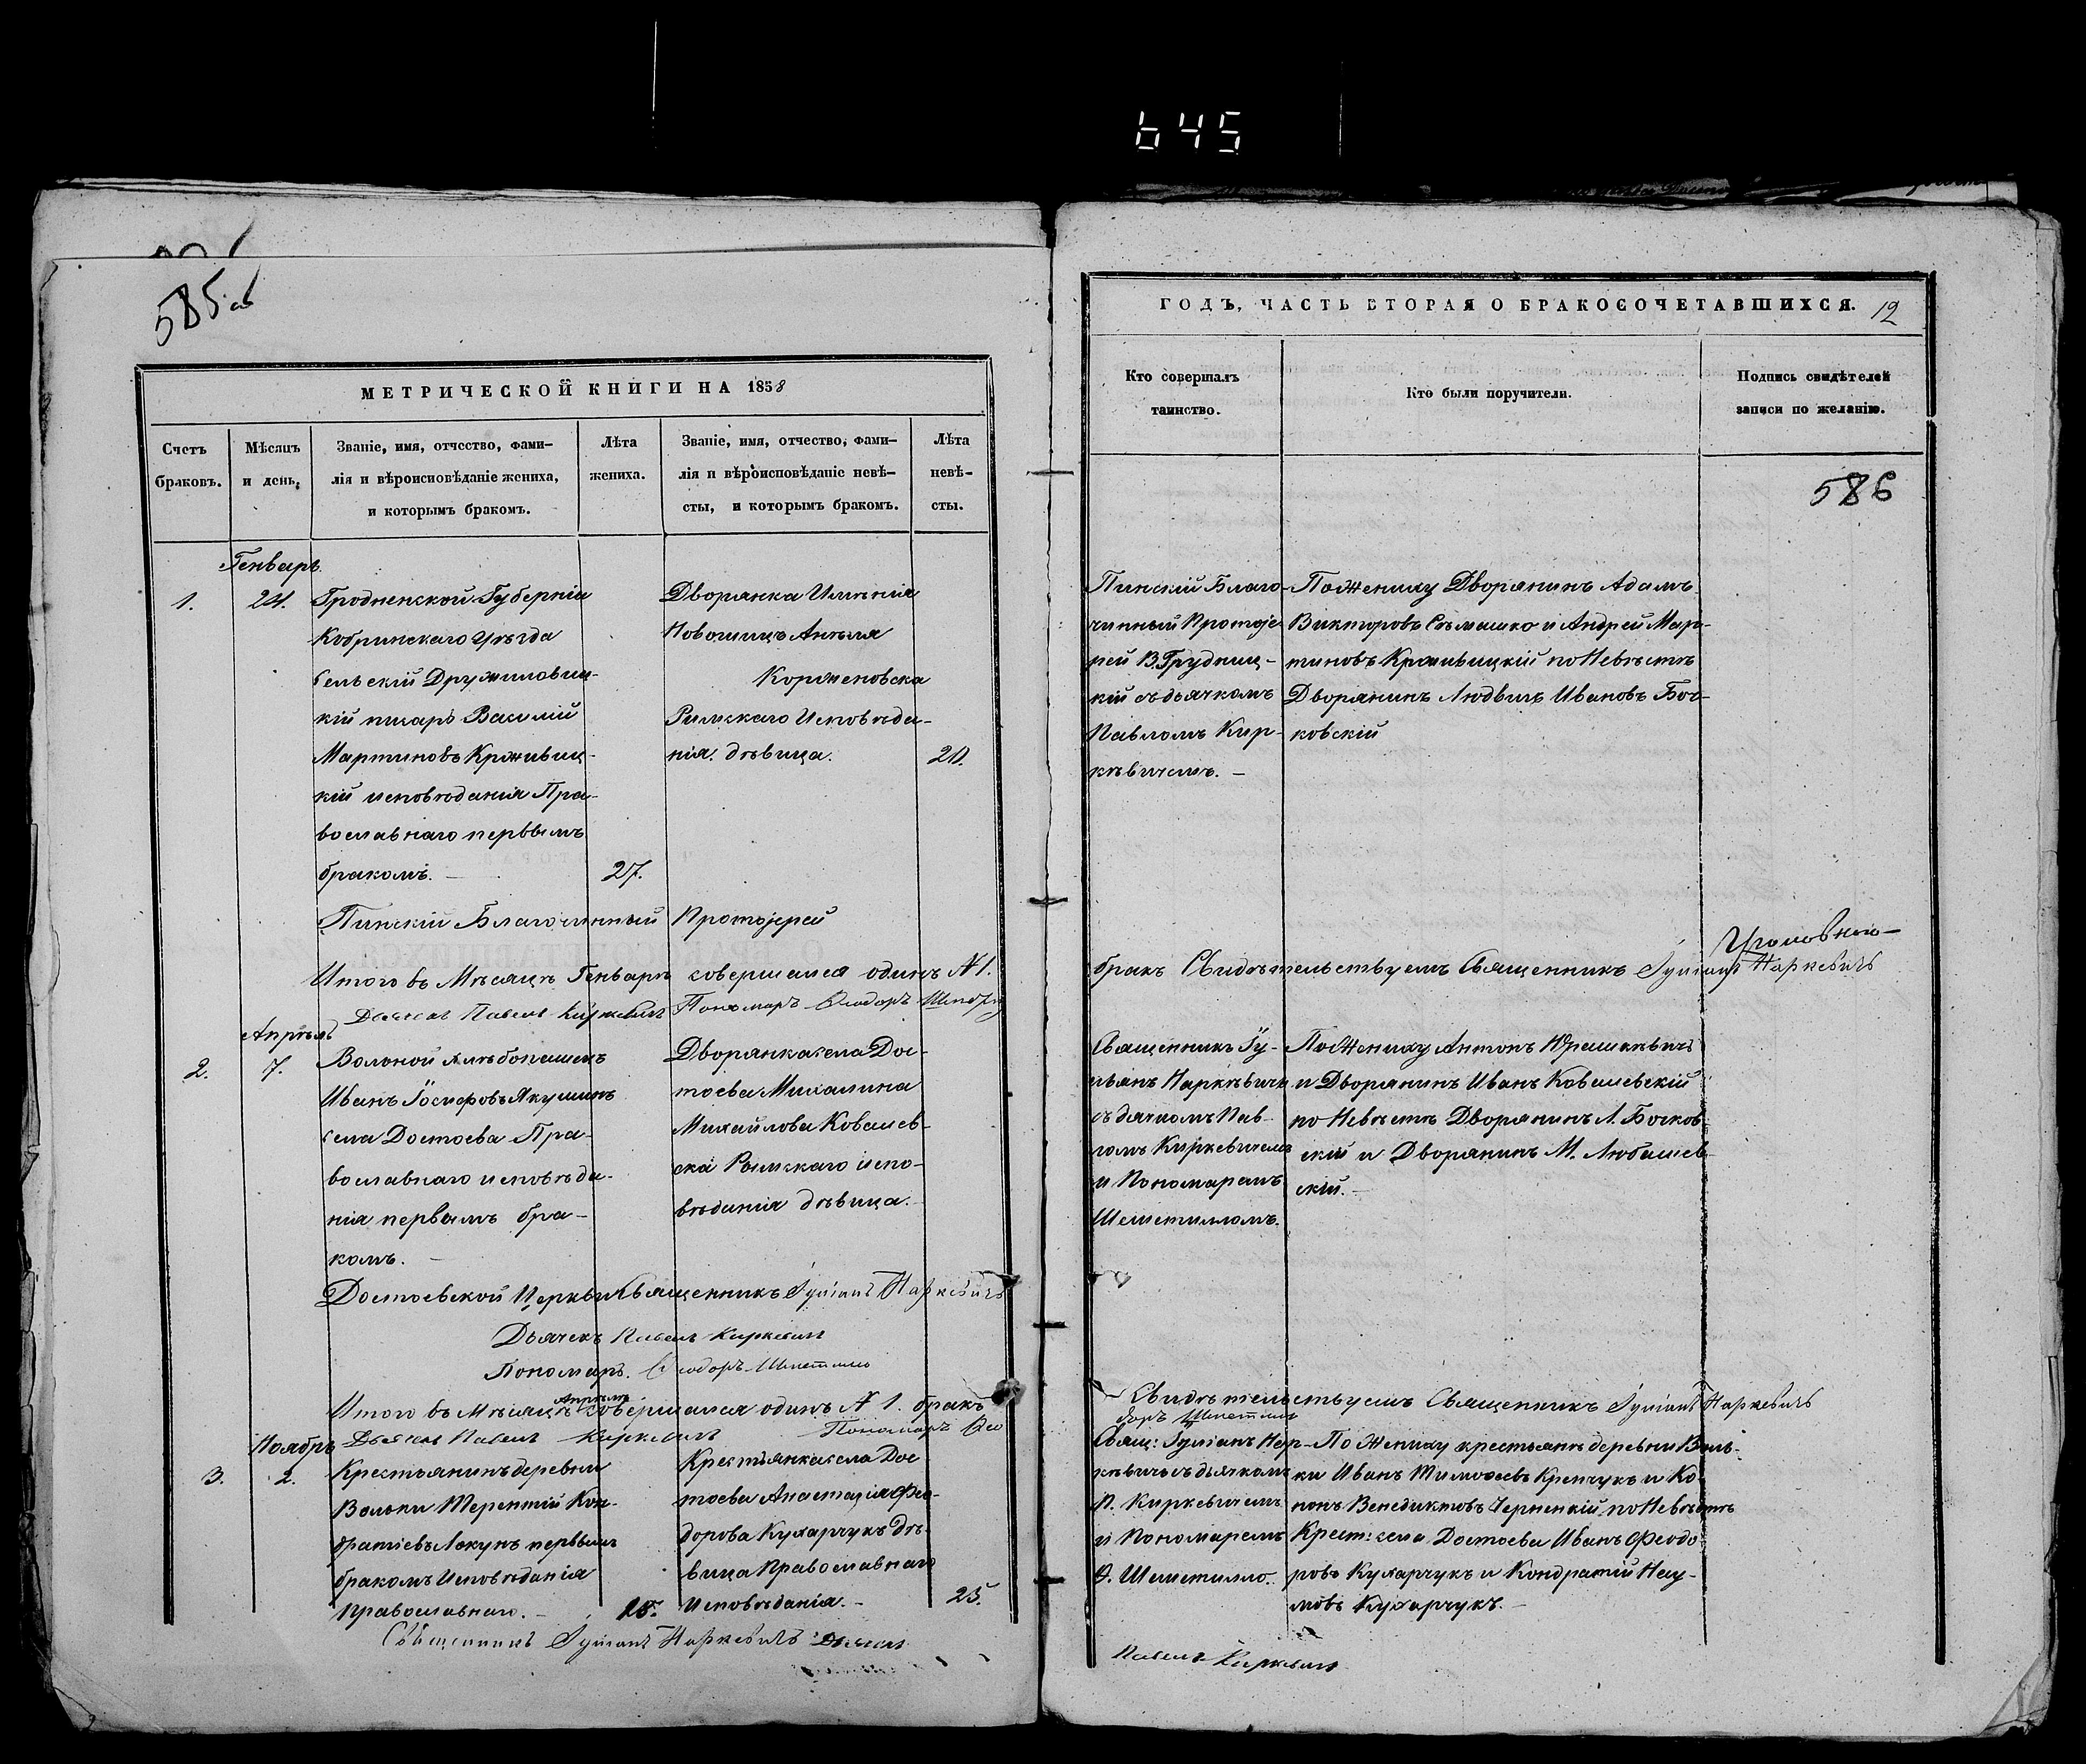 645
585 об
МЕТРИЧЕСКОЙ КНИГИ НА 1858
Счетъ
браковъ.
Мѣсяцъ
и день.
Званіе, имя, отчество, фами-
лія и вѣроисповѣданіе жениха,
и которымъ бракомъ.
Лѣта
жениха.
Званіе, имя, отчество, фами-
лія и вѣроисповѣданіе невѣ-
сты, и которымъ бракомъ.
Лѣта
невѣ-
сты.
Генварь
1.
24.
Гродненской Губерніи
Кобринскаго Уѣзда
сельскій Дружиловиц-
кій писарь Василій
Мартиновъ Крживиц-
кій исповѣданія Пра-
вославнаго первымъ
бракомъ. —
27.
Дворянка Имѣнія
Новошицъ Анѣля
Корженовска
Римскаго Исповѣда-
нія. дѣвица.
20.
Пинскій Благочинный Протоіерей
Итого въ Мѣсяцѣ Генварѣ совершался одинъ № 1.
Дьячекъ Павелъ Киркевичъ Пономарь Ѳеодоръ
Апрѣль
2.
7.
Вольной хлѣбопашецъ
Иванъ Іосифовъ Якушикъ
села Достоева Пра-
вославнаго исповѣда-
нія первымъ бра-
комъ. —
Дворянка села Дос-
тоева Михалина
Михайлова Ковалев-
ска Римскаго испо-
вѣданія дѣвица.
Достоевской Церкви Священникъ Іуліанъ Наркевичъ
Дьячекъ Павелъ Киркевичъ
Пономарь Ѳеодоръ
Итого въ Мѣсяцѣ Апрѣлѣ совершался одинъ № 1. бракъ
Дьячекъ Павелъ Киркевичъ Пономарь Ѳео
Ноябрь
3.
2.
Крестьянинъ деревни
Вольки Терентій Кон-
дратіевъ Локунъ первымъ
бракомъ Исповѣданія
Православнаго. —
25.
Крестьянка села Дос
тоева Анастазія Фео-
дорова Кухарчукъ Дѣ-
вица Православнаго
Исповѣданія. —
25.
Священникъ Іуліанъ Наркевичъ Дьячекъ
ГОДЪ, ЧАСТЬ ВТОРАЯ О БРАКОСОЧЕТАВШИХСЯ.
12
Кто совершалъ
таинство.
Кто были поручители.
Подпись свидѣтелей
записи по желанію.
586
Пинскій Благо-
чинный Протоіе
рей В. Грудниц-
кій съ дьячкомъ
Павломъ Кир-
кѣвичемъ. —
По Жениху Дворянинъ Адамъ
Викторовъ Сѣмашко и Андрей Мар-
тиновъ Крживицкій по Невѣстѣ
Дворянинъ Людвигъ Ивановъ Боч-
ковскій
бракъ Свидѣтельствуемъ Священникъ Іуліанъ Наркевичъ
Священникъ Іу-
льянъ Наркѣвичъ
съ дячкомъ Пав-
ломъ Киркевичемъ
и Пономаремъ
По Жениху Антонъ Юрашкѣвичъ
и Дворянинъ Иванъ Ковалевскій
по Невѣстѣ Дворянинъ Л. Бочков-
скій и Дворянинъ М. Любашев-
скій. —
Свидѣтельствуемъ Священникъ Іуліанъ Наркевичъ
доръ
Свящ: Іуліанъ Нар-
кѣвичъ съ дьячкомъ
П. Киркевичемъ
и Пономаремъ
По Жениху крестьяне деревни Воль-
ки Иванъ Тимофеевъ Кренчукъ и Ко-
нонъ Венедиктовъ Черненкій, по Невѣстѣ
Крест: села Достоева Иванъ Феодо-
ровъ Кухарчукъ и Кондратій Нау-
мовъ Кухарчукъ. —
Павелъ Киркевичъ